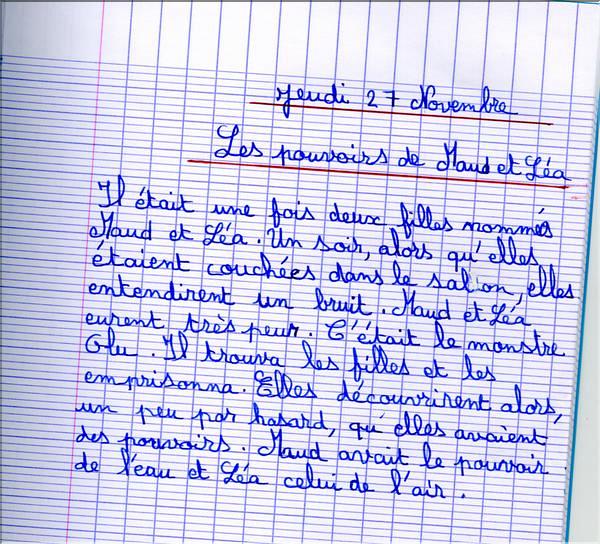 Jeudi 27 Novembre
Les pouvoirs de Maud et Léa
Il était une fois deux filles nommés
Maud et Léa. Un soir, alors qu'elles
étaient couchées dans le salion, elles
entendirent un bruit. Maud et Léa
eurent très peur. C'était le monstre
Glu. Il trouva les filles et les
emprisonna. Elles découvrirent alors,
un peu par hasard, qu'elles avaient
des pouvoirs. Maud avait le pouvoir
de l'eau et Léa celui de l'air.